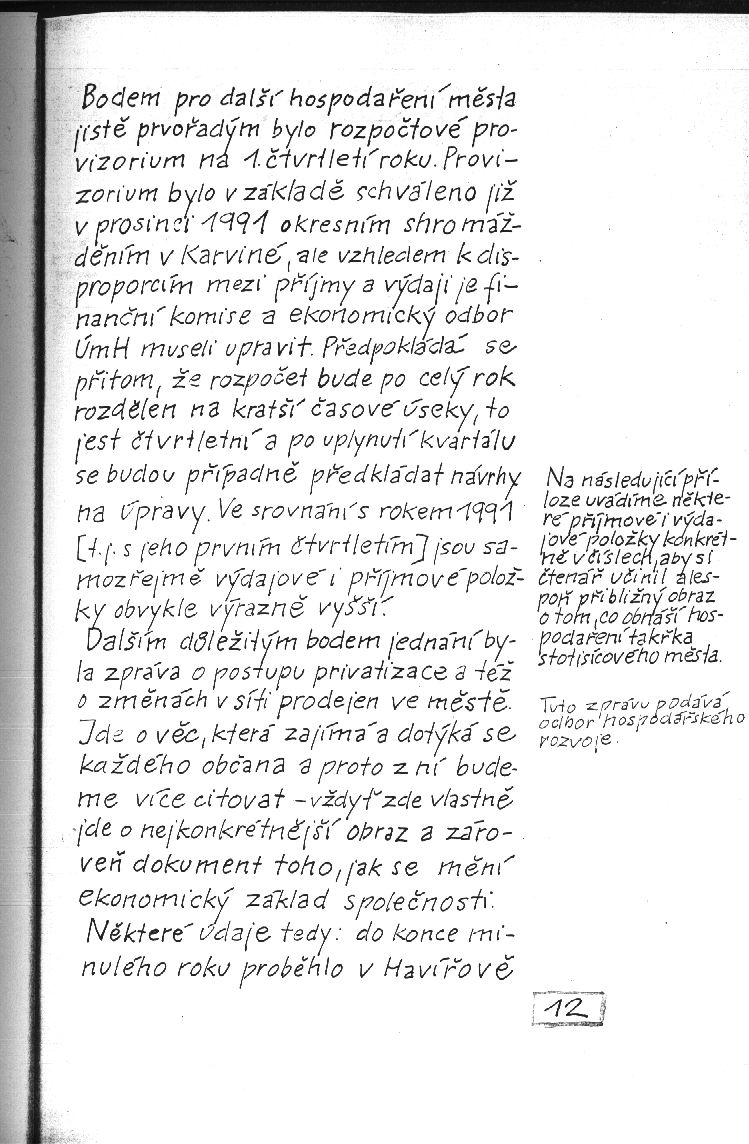 Bodem pro další hospodaření města
jistě prvořadým bylo rozpočtové pro-
vizorium na 1. čtvrtletí roku. Provi-
zorium bylo v základě schváleno již
v prosinci 1991 okresním shromáž-
děním v Karviné, ale vzhledem k dis-
proporcím mezi příjmy a výdaji je fi-
nanční komise a ekonomický odbor
ÚmH museli upravit. Předpokládá se
přitom, že rozpočet bude po celý rok
rozdělen na kratší časové úseky, to
jest čtvrtletní a po uplynutí kvartálu
se budou případně předkládat návrhy
na úpravy. Ve srovnání s rokem 1991
[t.j. s jeho prvním čtvrtletím] jsou sa-
mozřejmě výdajové i příjmové polož-
ky obvykle výrazně vyšší.
Dalším důležitým bodem jednání by-
la zpráva o postupu privatizace a též
o změnách v síti prodejen ve městě.
Jde o věc, která zajímá a dotýká se
každého občana a proto z ní bude-
me více citovat – vždyť zde vlastně
jde o nejkonkrétnější obraz a záro-
veň dokument toho, jak se mění
ekonomický základ společnosti.
Některé údaje tedy: do konce mi-
nulého roku proběhlo v Havířově
Na následující pří-
loze uvádíme někte-
ré příjmové i výda-
jové položky konkrét-
ně v číslech, aby si
čtenář učinil ales-
poň přibližný obraz
o tom, co obnáší hos-
podaření takřka
stotisícového města.
Tuto zprávu podává
odbor hospodářského
rozvoje.
12